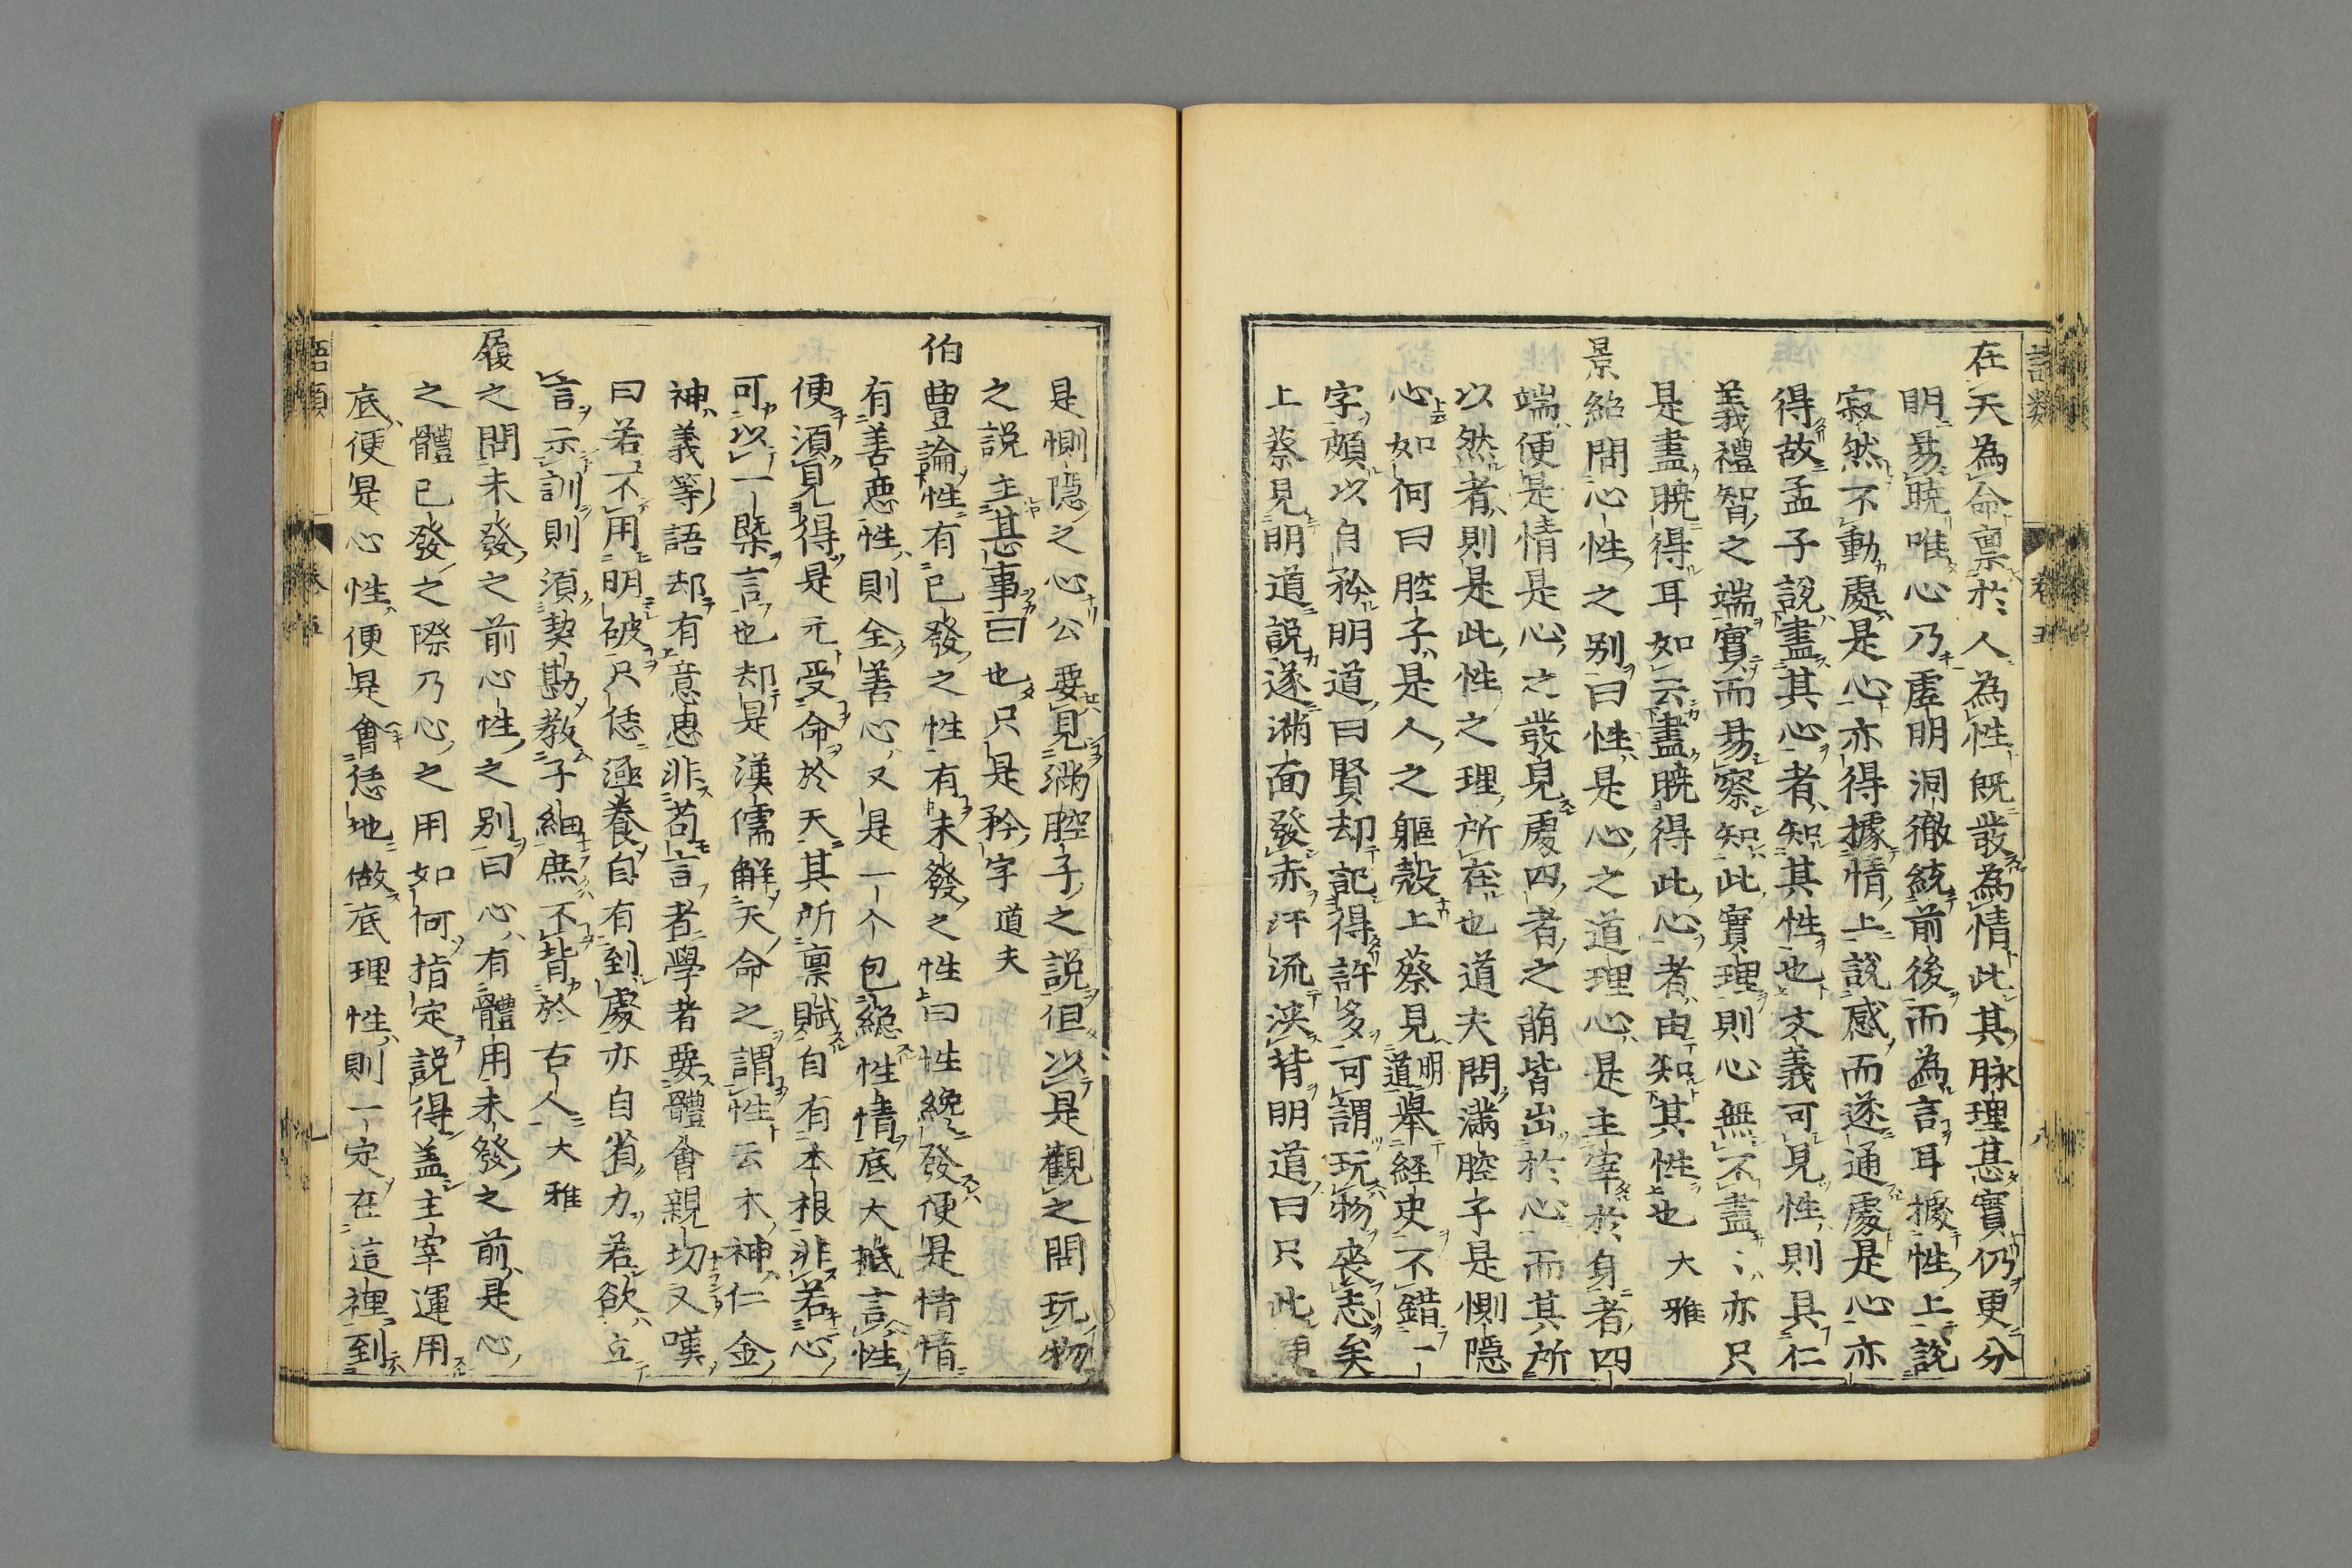 在天為命禀於人為性既發為情此其脉理甚實仍更分
明易曉唯心乃虚明洞徹統前後而為言耳據性上說
寂然不動處是心亦得據情上說感而遂通處是心亦
得故孟子說盡其心者知其性也文義可見性則具仁
義禮智之端實而易察知此實理則心無不盡〻亦只
是盡曉得耳如云盡曉得此心者由知其性也 大雅
景紹問心性之別曰性是心之道理心是主宰於身者四
端便是情是心之發見處四者之萌皆出於心而其所
以然者則是此性之理所在也道夫問滿腔子是惻隱
心如何曰腔子是人之軀殼上蔡見明道舉経史不錯一
字頗以自矜明道曰賢却記得許多可謂玩物喪志矣
上蔡見明道說遂滿面發赤汗流浹背明道曰只此便
是惻隱之心公要見滿腔子之説但以是觀之問玩物
之説主甚事曰也只是矜字 道夫
伯豊論性有已發之性有未發之性曰性纔發便是情情
有善惡性則全善心又是一个包緫性情底大抵言性
便須見得是元受命於天其所禀賦自有本根非若心
可以一槩言也却是漢儒解天命之謂性云木神仁金
神義等語却有意思非苟言者學者要體會親切又嘆
曰若不用明破只恁涵養自有到處亦自省力若欲立
言示訓則須契勘教子細庶不背於古人 大雅
履之問未發之前心性之別曰心有體用未發之前是心
之體已發之際乃心之用如何指定説得盖主宰運用
底便是心性便是會恁地做底理性則一定在這裡到
語類 卷五